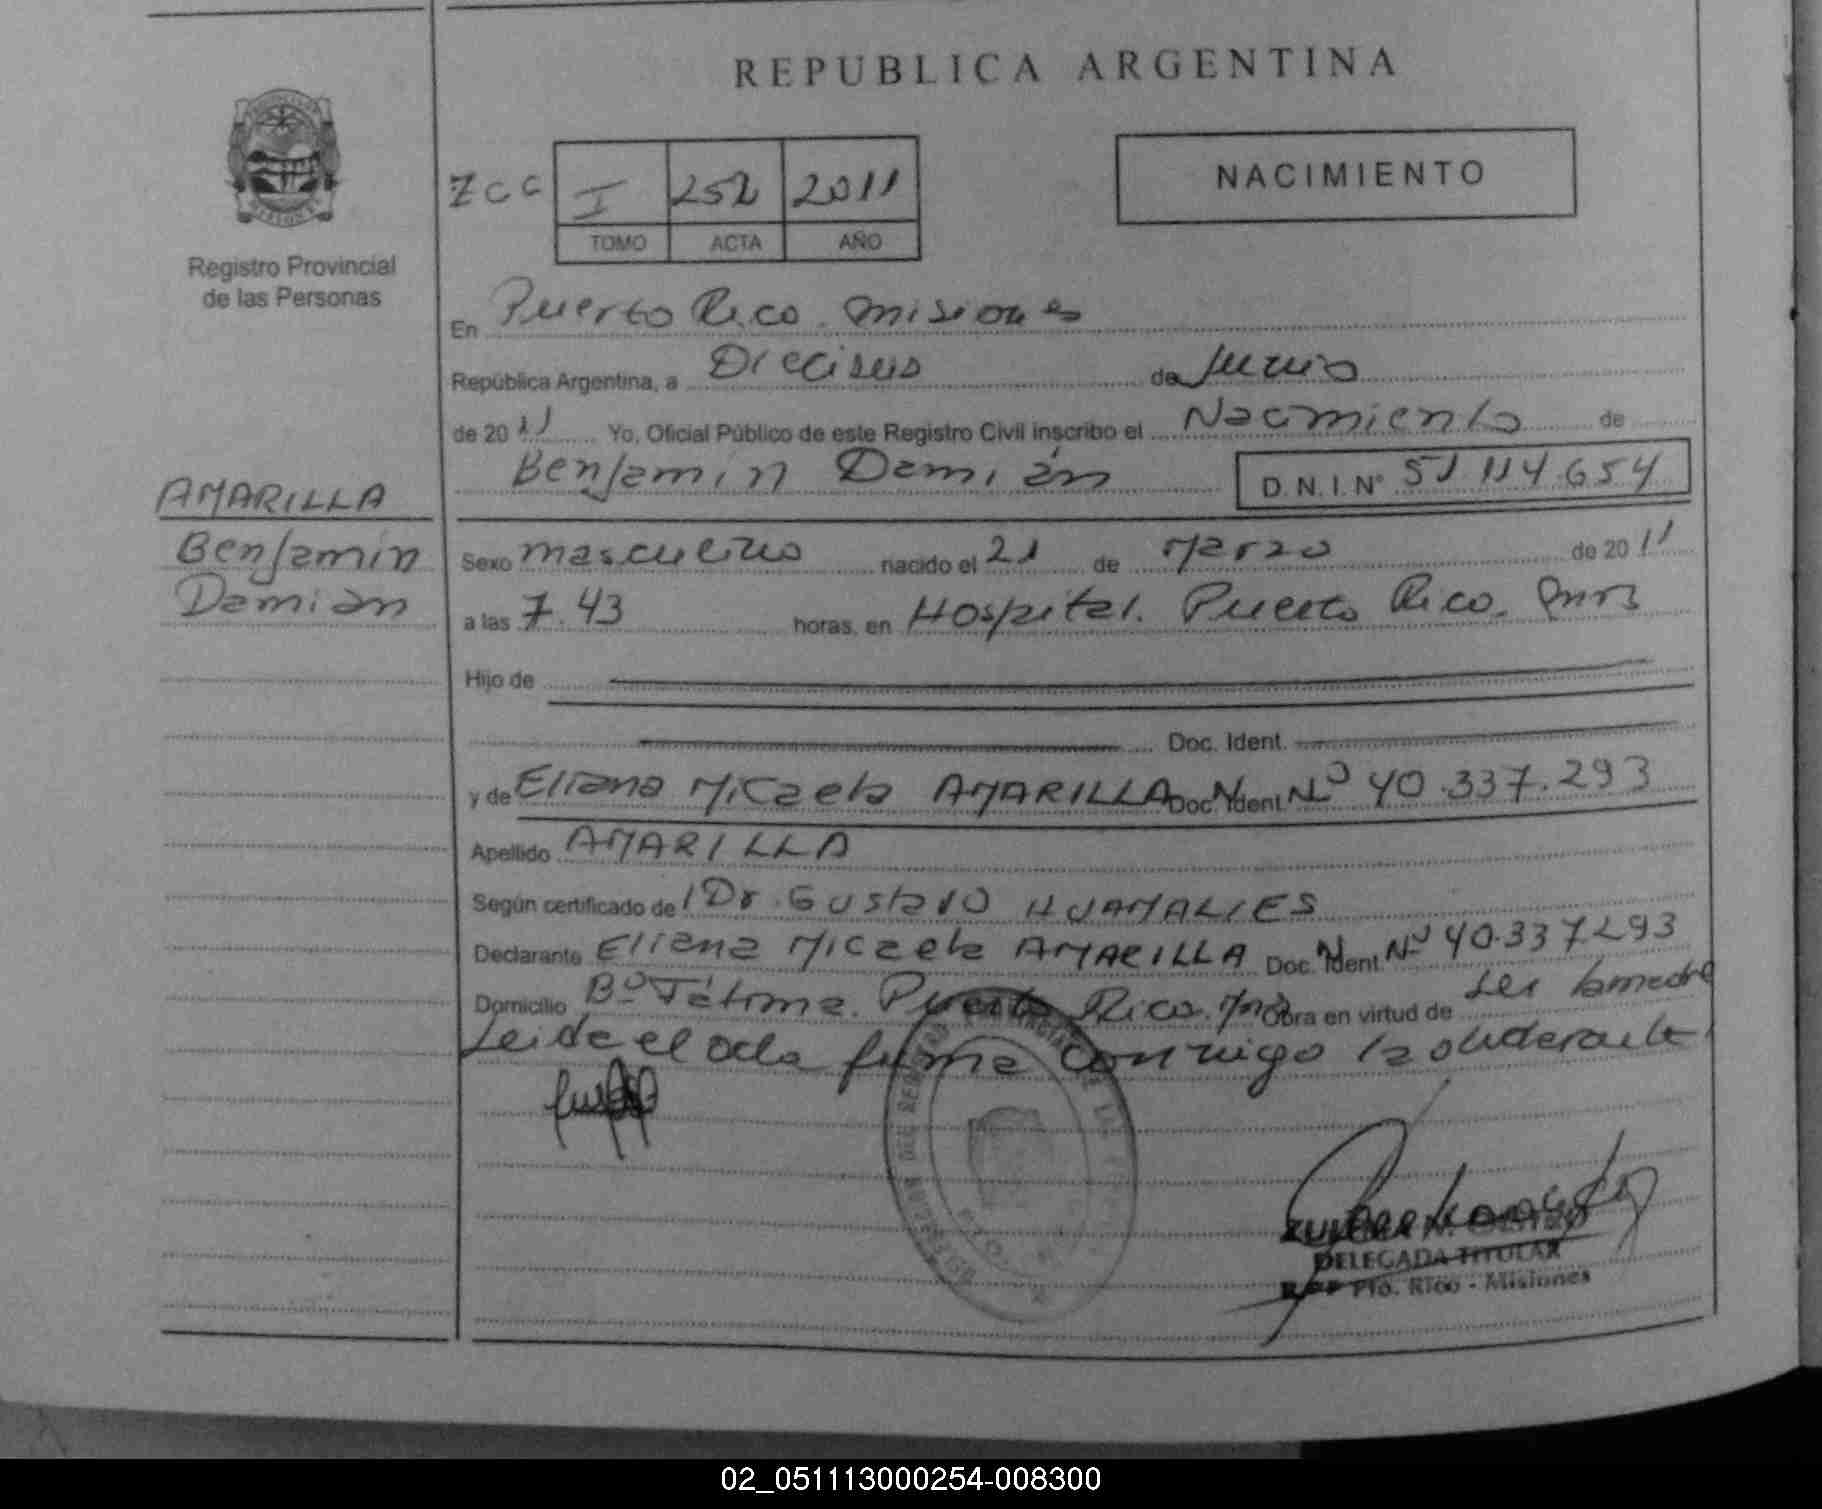 REPUBLICA ARGENTINA
NACIMIENTO
I 252 2011
TOMO ACTA AÑO
Registro Provincial
de las Personas
En Puerto Rico. Misiones
República Argentina, a Dieciseis de Junio
de 2011 Yo, Oficial Público de este Registro Civil inscribo el Nacimiento de
Benjamín Damián D.N.I.Nº 51.114.654
AMARILLA
Benjamín
Damián
Sexo masculino nacido el 21 de Marzo de 2011
a las 7.43 horas, en Hospital. Puerto Rico. Mnes
Hijo de
Doc. Ident.
y de Eliana Micaela AMARILLA Doc. Ident. Nº 40.337.293
Apellido AMARILLA
Según certificado de Dr. Gustavo HUAMALIES
Declarante Eliana Micaela AMARILLA Doc. Ident. Nº 40.337293
Domicilio Bº Fátima. Puerto Rico. Mnes Obra en virtud de ser la madre
Leida el acta firma conmigo la
DELEGADA TITULAR
Pto. Rico - Misiones
02_051113000254-008300